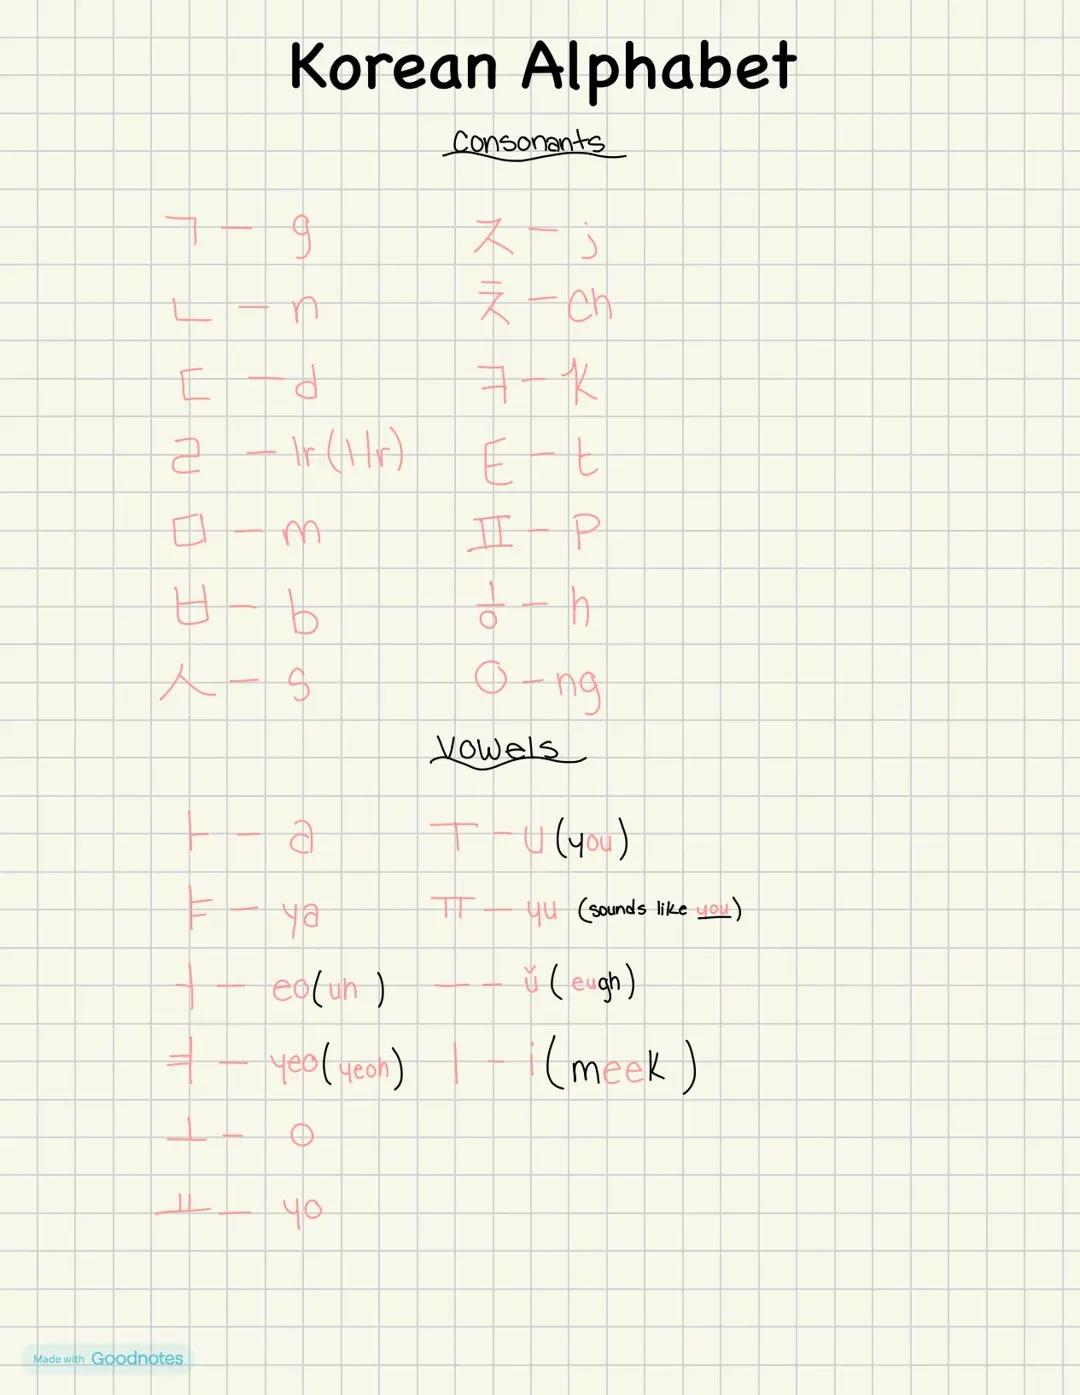 Korean Alphabet
Consonants
ㄱ - g
ㄴ - n
ㄷ - d
ㄹ - lr (l lr)
ㅁ - m
ㅂ - b
ㅅ - s
ㅈ - j
ㅊ - ch
ㅋ - k
ㅌ - t
ㅍ - p
ㅎ - h
ㅇ - ng
Vowels
ㅏ - a
ㅑ - ya
ㅓ - eo (uh )
ㅕ - yeo (yeoh)
ㅗ - o
ㅛ - yo
ㅜ - u (you)
ㅠ - yu (sounds like you)
ㅡ - ŭ (eugh)
ㅣ - i (meek )
Made with Goodnotes